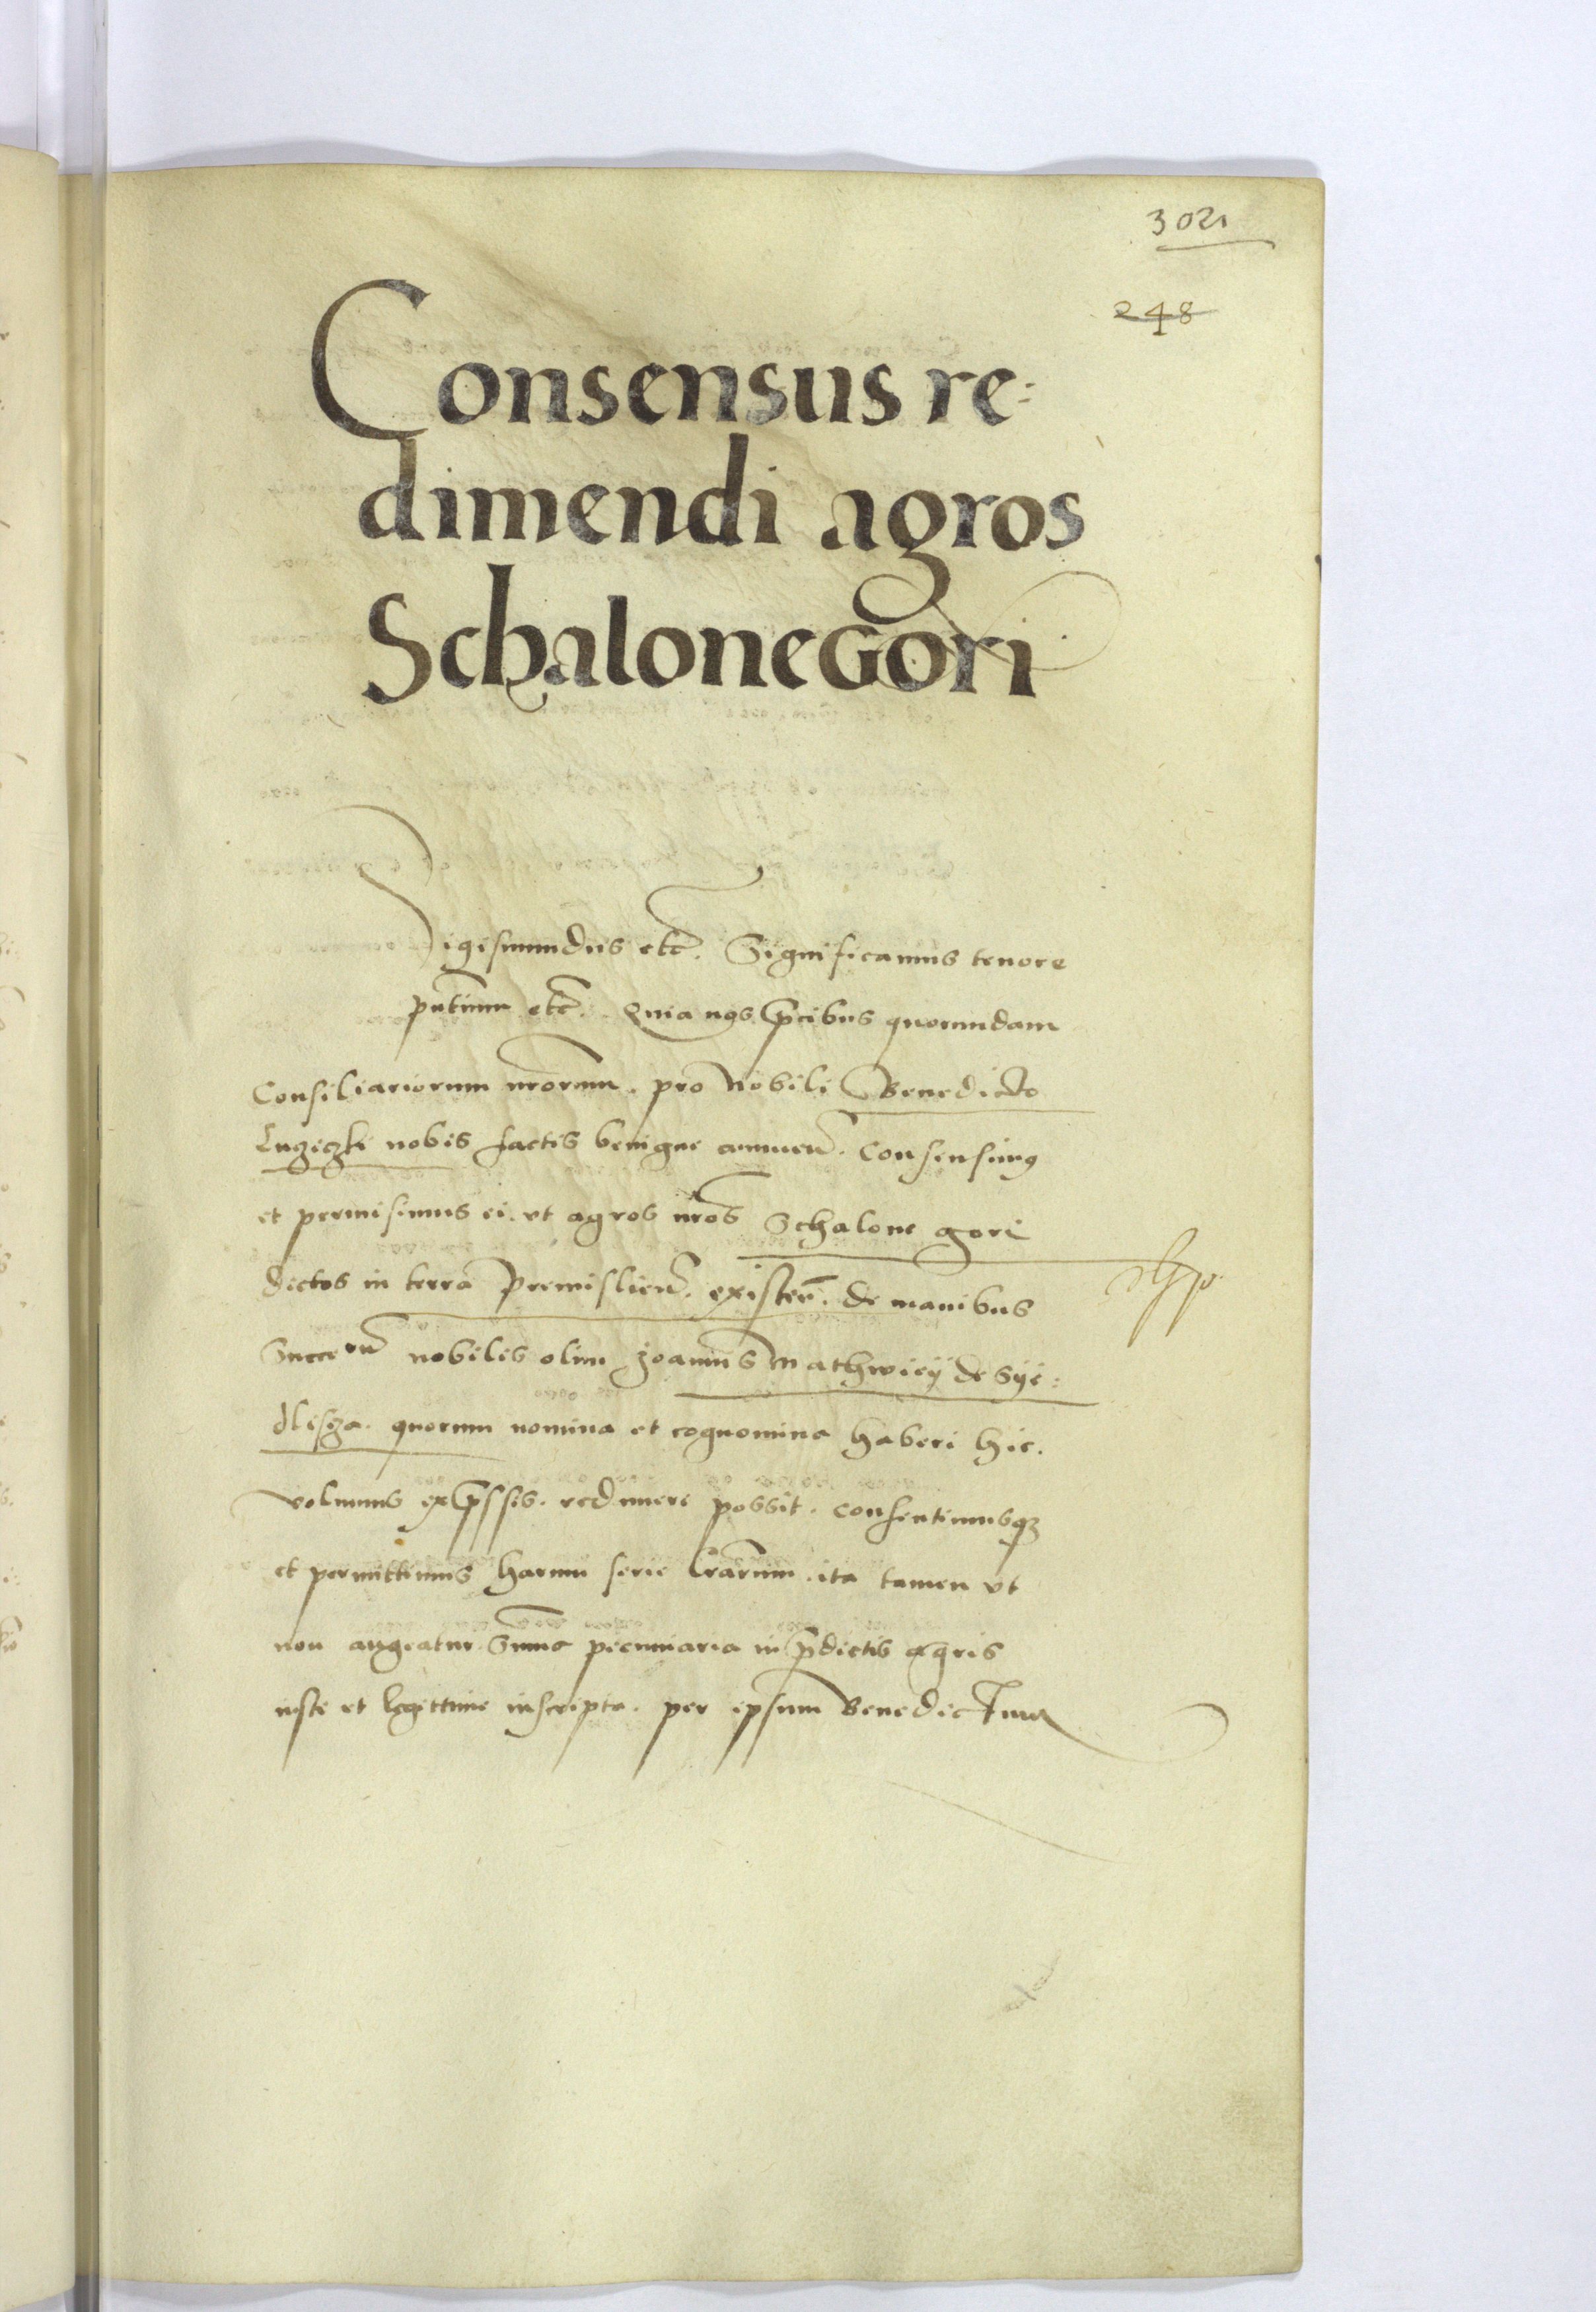 3021
248
Consensus re:
dimendi agros
Schalonegori
Sigismundus etc. Significamus tenore
pntium etc. Quia nos precibus quorundam
Consiliariorum nrorum. pro Nobili Benedicto
Luziczki nobis factis benigne annuen. Consensimus
et permisimus ei. ut agros nros Schalone gori
dictos in terra Premislien. existen. de manibus
Succeorum nobilis olim Joannis Mathwieij de Syie:
dliska. quorum nomina et cognomina haberi hic.
volumus expssis. redimere possit. consentimusq3
et permittimus harum serie lrarum. ita tamen ut
non augeatur Summa pecuniaria in predictis agris
iuste et legittime inscripta. per ipsum Benedictum